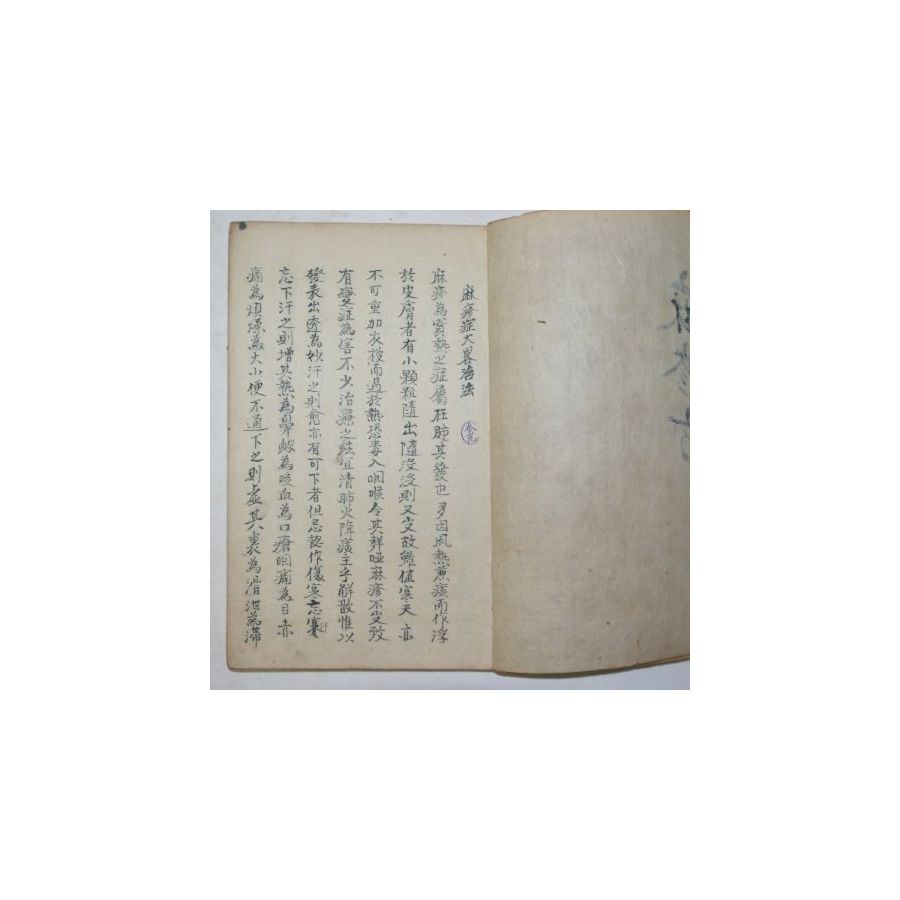 麻疹症大畧治法
麻疹為實熱之症屬在肺其發也多因風熱兼痰而作浮
於皮膚者有小顆粒隨出隨沒沒則又出故雖值寒天亦
不可重加衣被而過於熱恐毒入咽喉令其聲啞麻疹不出致
有變症為害不少治療之法宜清肺火降痰主乎解散惟以
發表出透為妙汗之則愈亦有可下者但忌認作傷寒
忘下汗之則增其熱為鼻衄為咳血為口瘡咽痛為目赤
痛為煩燥為大小便不通下之則虛其裏為滑泄為滯
麻疹方